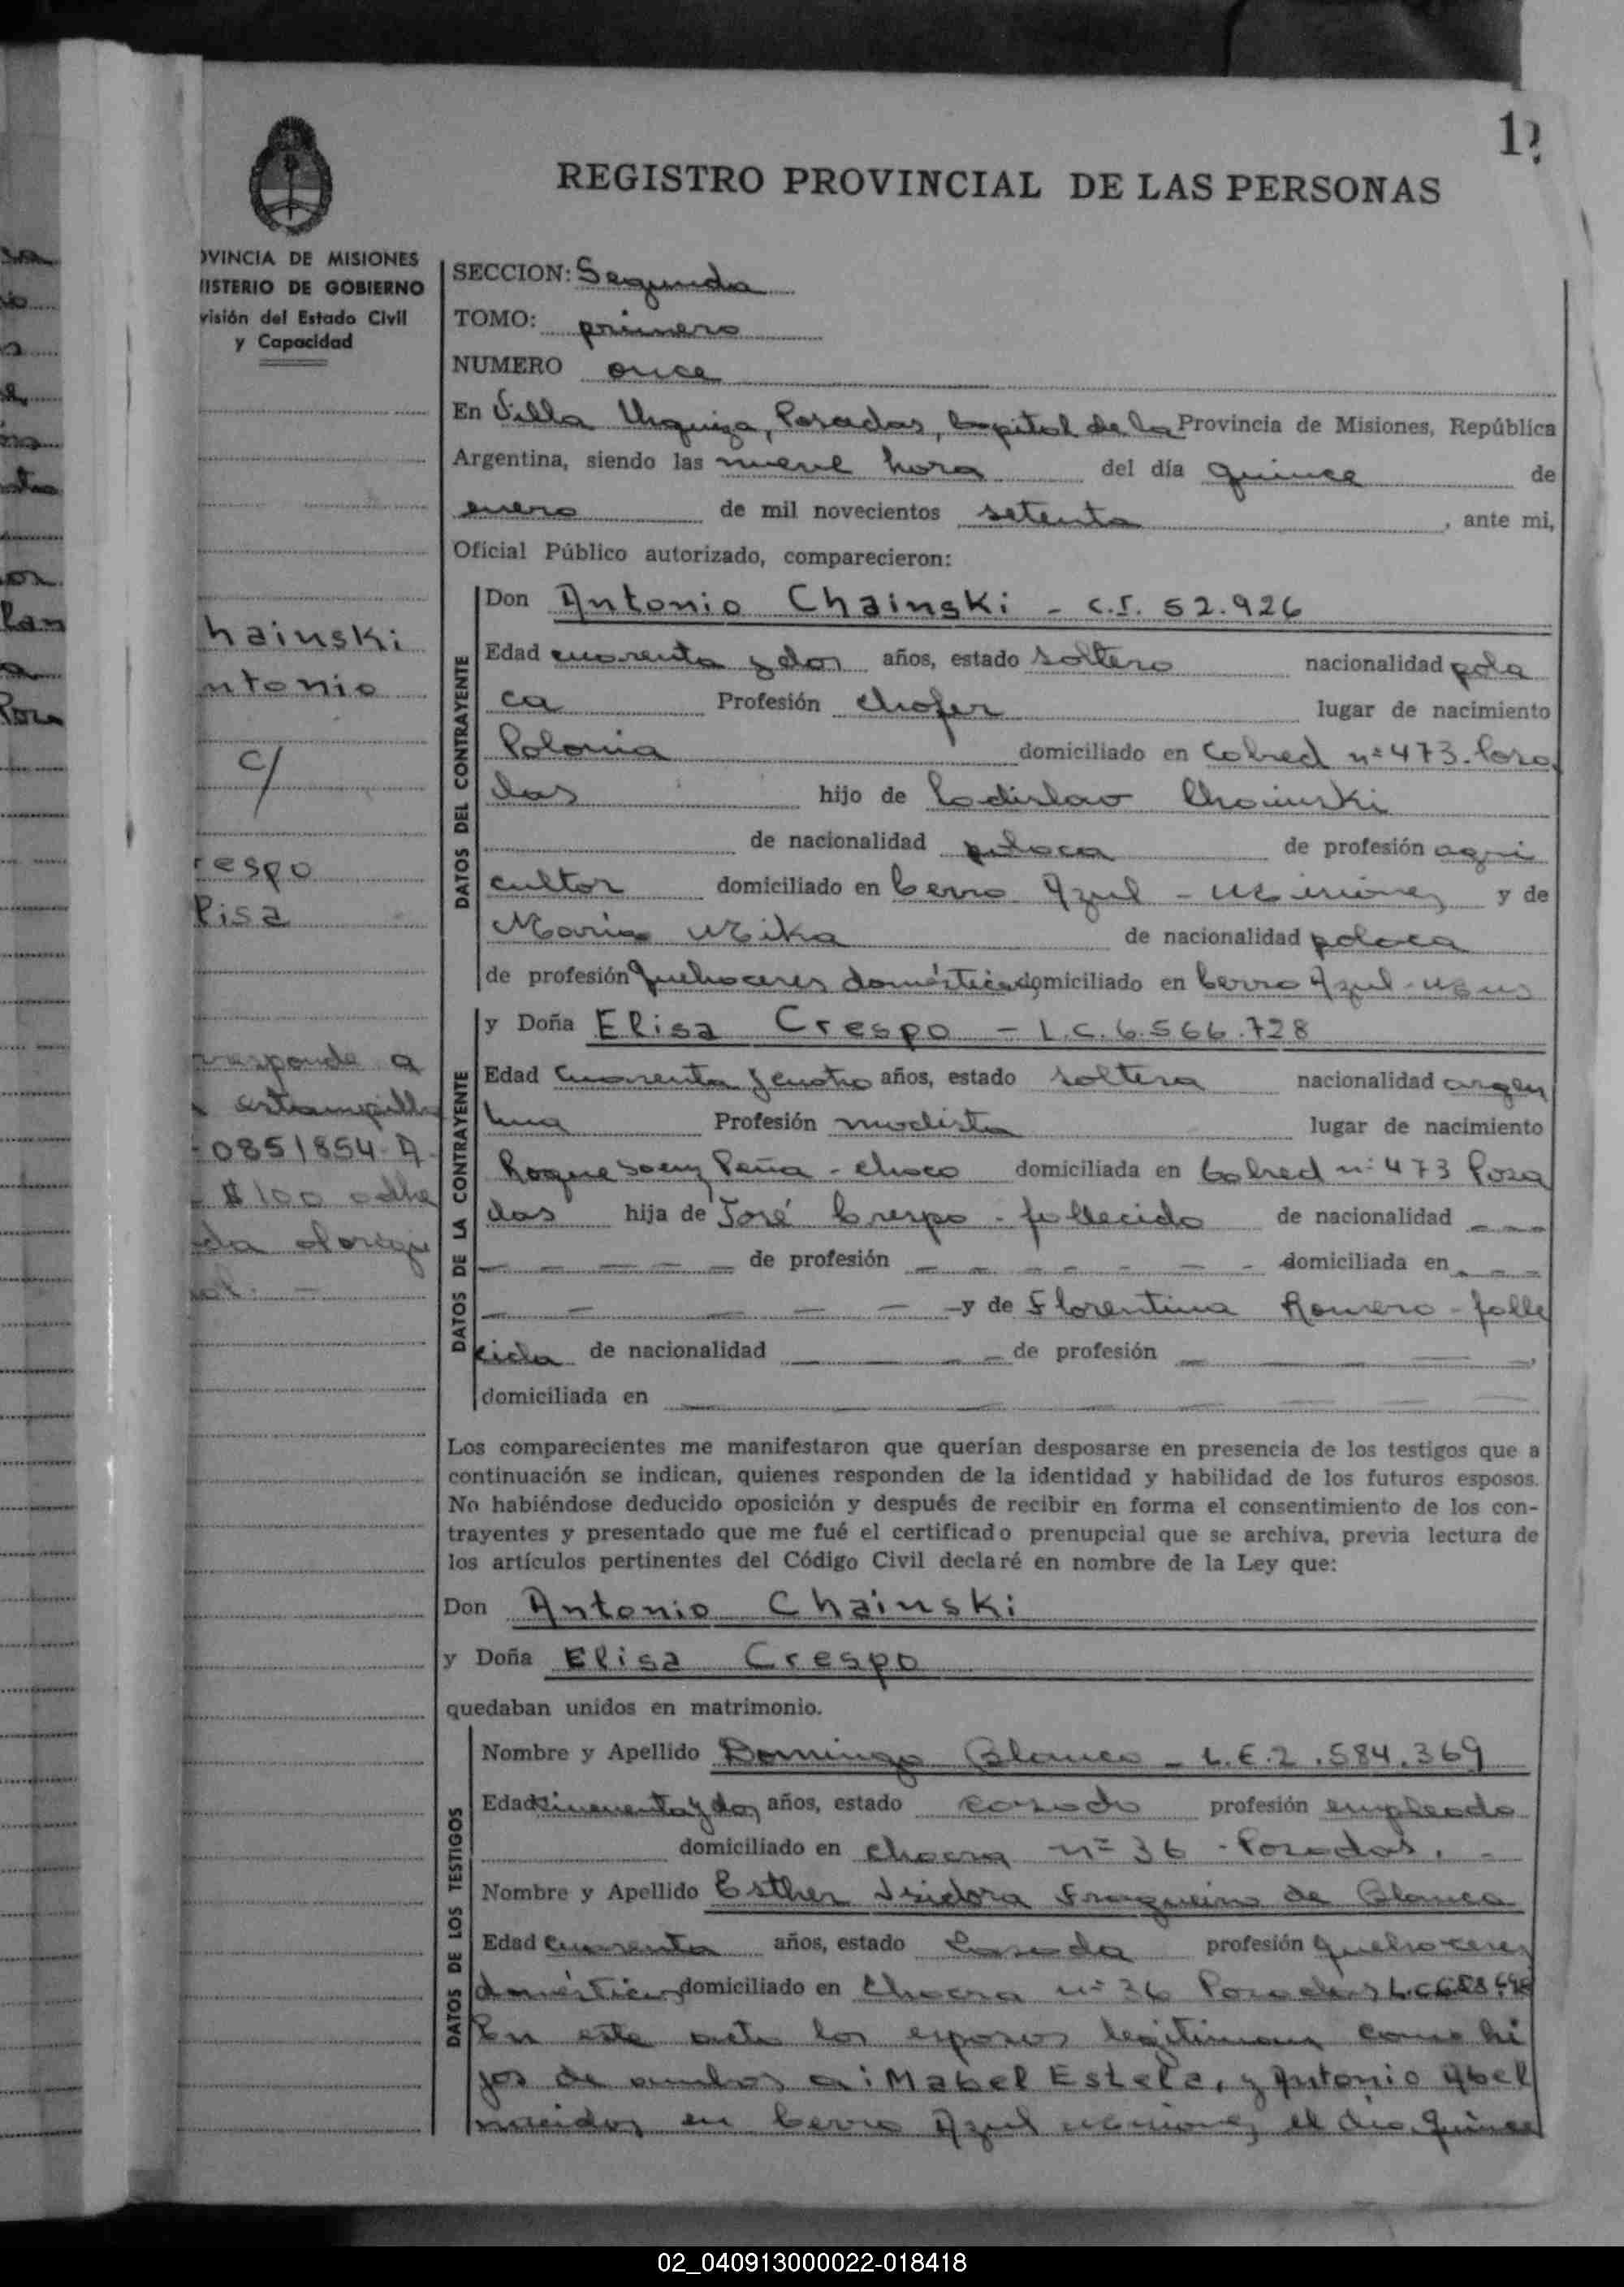 12
REGISTRO PROVINCIAL DE LAS PERSONAS
OVINCIA DE MISIONES
NISTERIO DE GOBIERNO
visión del Estado Civil
y Capacidad
hainski
ntonio
c/
respo
lisa
rresponde a
estampilla
0851854-A
$ 100 adhe
SECCION: Segunda
TOMO: primero
NUMERO once
En Villa Urquiza, Posadas, Capital de la Provincia de Misiones, República
Argentina, siendo las nueve hora del día quince de
enero de mil novecientos setenta, ante mi,
Oficial Público autorizado, comparecieron:
DATOS DEL CONTRAYENTE
Don Antonio Chainski - C.I. 52.926
Edad cuarenta y dos años, estado soltero nacionalidad pola
ca Profesión chofer lugar de nacimiento
Polonia domiciliado en Cabred nº 473. Posa
das hijo de Ladislao Chainski
de nacionalidad polaca de profesión agri
cultor domiciliado en Cerro Azul - Misiones y de
María Mika de nacionalidad polaca
de profesión quehaceres domésticos domiciliado en Cerro Azul-
DATOS DE LA CONTRAYENTE
y Doña Elisa Crespo - L.C. 6.566.728
Edad Cuarenta y cuatro años, estado soltera nacionalidad argen
tina Profesión modista lugar de nacimiento
Roque Saenz Peña - Chaco domiciliada en Cabred nº 473 Posa
das hija de José Crespo - fallecido de nacionalidad - - -
- - - - - de profesión - - - - - - - domiciliada en - - -
- - - - - y de Florentina Romero - falle
cida de nacionalidad - - - de profesión - - - -
domiciliada en - - - - - -
Los comparecientes me manifestaron que querían desposarse en presencia de los testigos que a
continuación se indican, quienes responden de la identidad y habilidad de los futuros esposos.
No habiéndose deducido oposición y después de recibir en forma el consentimiento de los con-
trayentes y presentado que me fué el certificado prenupcial que se archiva, previa lectura de
los artículos pertinentes del Código Civil declaré en nombre de la Ley que:
Don Antonio Chainski
y Doña Elisa Crespo
quedaban unidos en matrimonio.
DATOS DE LOS TESTIGOS
Nombre y Apellido Domingo Blanco - L.E. 2.584.369
Edad cincuenta y dos años, estado casado profesión empleado
domiciliado en chacra nº 36 - Posadas. -
Nombre y Apellido Esther Isidora Fragueiro de Blanco
Edad Cuarenta años, estado Casada profesión quehaceres
domésticos domiciliado en Chacra nº 36 Posadas L.C.
En este acto los esposos legitiman como hi
jos de ambos a: Mabel Estela, y Antonio Abel
nacidos en Cerro Azul Misiones el día quince
02_040913000022-018418